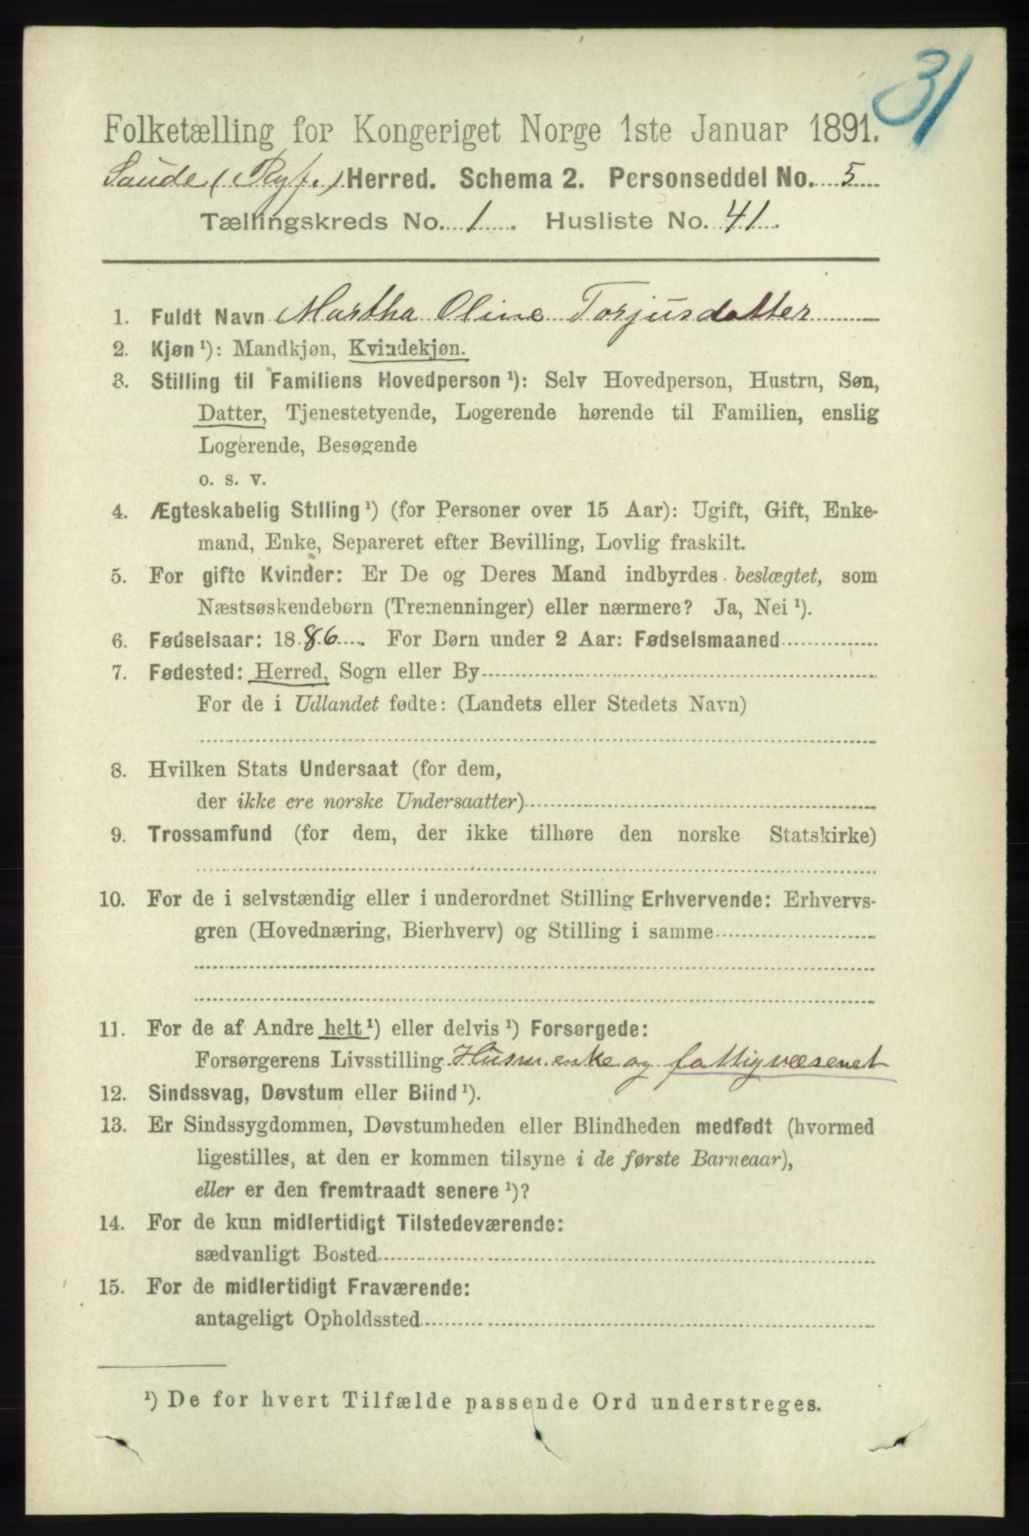 31
Folketælling for Kongeriget Norge 1ste Januar 1891.
Saude (Ryf.) Herred. Schema 2. Personseddel No. 5
Tællingskreds No. 1. Husliste No. 41.
1. Fuldt Navn Martha Oline Torjusdatter
2. Kjøn ¹): Mandkjøn, Kvindekjøn.
3. Stilling til Familiens Hovedperson ¹): Selv Hovedperson, Hustru, Søn,
Datter, Tjenestetyende, Logerende hørende til Familien, enslig
Logerende, Besøgende
o. s. v.
4. Ægteskabelig Stilling ¹) (for Personer over 15 Aar): Ugift, Gift, Enke-
mand, Enke, Separeret efter Bevilling, Lovlig fraskilt.
5. For gifte Kvinder: Er De og Deres Mand indbyrdes beslægtet, som
Næstsøskendebørn (Tremenninger) eller nærmere? Ja, Nei ¹).
6. Fødselsaar: 1886. For Børn under 2 Aar: Fødselsmaaned
7. Fødested: Herred, Sogn eller By
For de i Udlandet fødte: (Landets eller Stedets Navn)
8. Hvilken Stats Undersaat (for dem,
der ikke ere norske Undersaatter)
9. Trossamfund (for dem, der ikke tilhøre den norske Statskirke)
10. For de i selvstændig eller i underordnet Stilling Erhvervende: Erhvervs-
gren (Hovednæring, Bierhverv) og Stilling i samme
11. For de af Andre helt ¹) eller delvis ¹) Forsørgede:
Forsørgerens Livsstilling Husm. enke og fattigvæsenet
12. Sindssvag, Døvstum eller Blind ¹).
13. Er Sindssygdommen, Døvstumheden eller Blindheden medfødt (hvormed
ligestilles, at den er kommen tilsyne i de første Barneaar),
eller er den fremtraadt senere ¹)?
14. For de kun midlertidigt Tilstedeværende:
sædvanligt Bosted
15. For de midlertidigt Fraværende:
antageligt Opholdssted
¹) De for hvert Tilfælde passende Ord understreges.